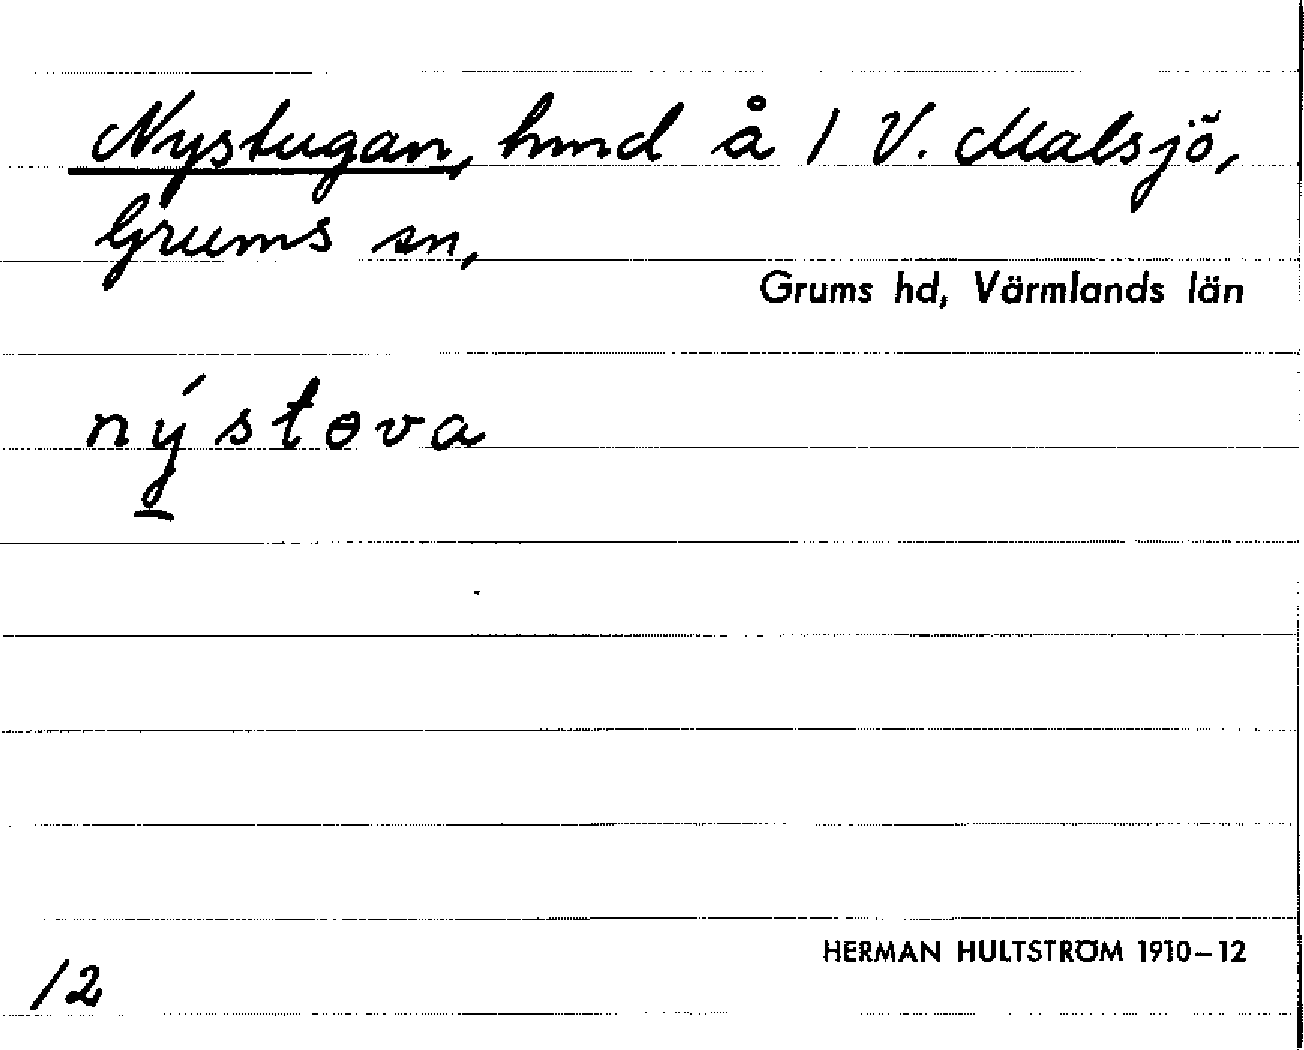 Nystugan, hmd å 1 V. Malsjö,
Grums sn,
Grums hd, Värmlands län
nýstɵva
12
HERMAN HULTSTRÖM 1910–12